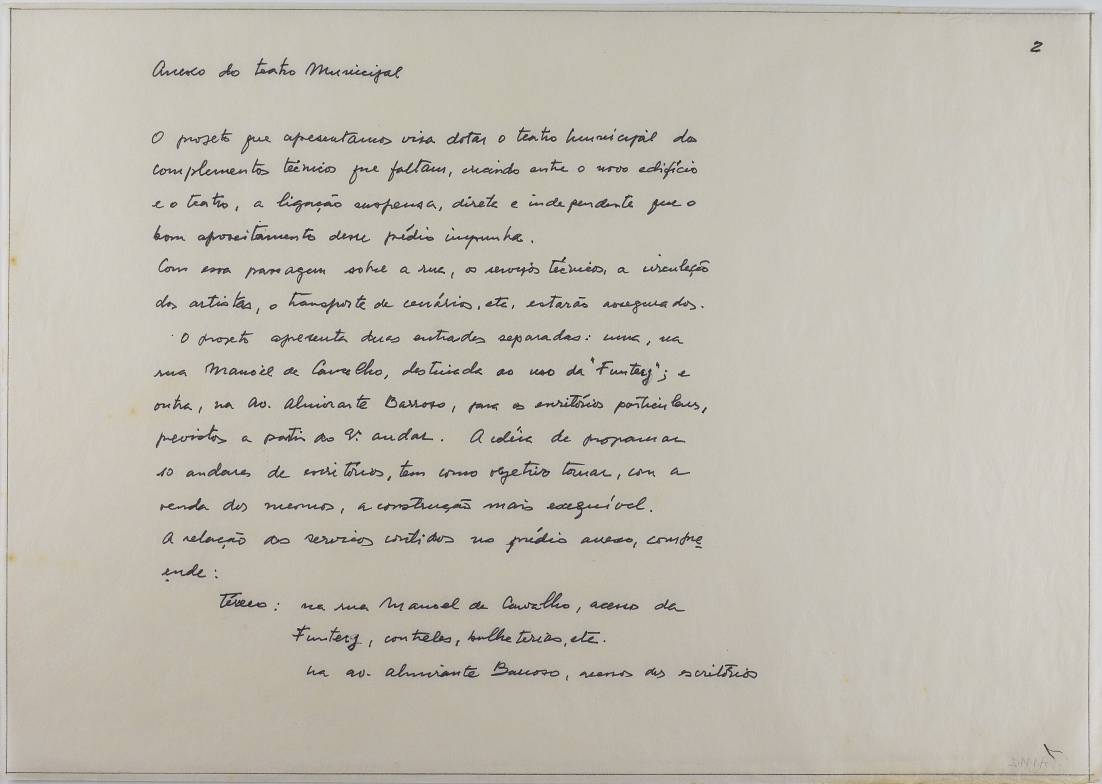 2
Anexo do teatro Municipal
O projeto que apresentamos visa dotar o teatro Municipal dos
complementos técnicos que faltam, criando entre o novo edifício
e o teatro, a ligação suspensa, direta e independente que o
bom aproveitamento desse prédio impunha.
Com essa passagem sobre a rua, os serviços técnicos, a circulação
dos artistas, o transporte de cenários, etc. estarão assegurados.
O projeto apresenta duas entradas separadas: uma, na
rua Manoel de Carvalho, destinada ao uso da "Funterj"; e
outra, na Av. Almirante Barroso, para os escritórios particulares,
previstos a partir do 9º andar. A idéia de programar
10 andares de escritórios, tem como objetivo tornar, com a
venda dos mesmos, a construção mais exequível.
A relação dos serviços contidos no prédio anexo, compre
ende:
Térreo: na rua Manoel de Carvalho, acesso da
Funterj, controles, bilheterias, etc.
na av. Almirante Barroso, acesso dos escritórios